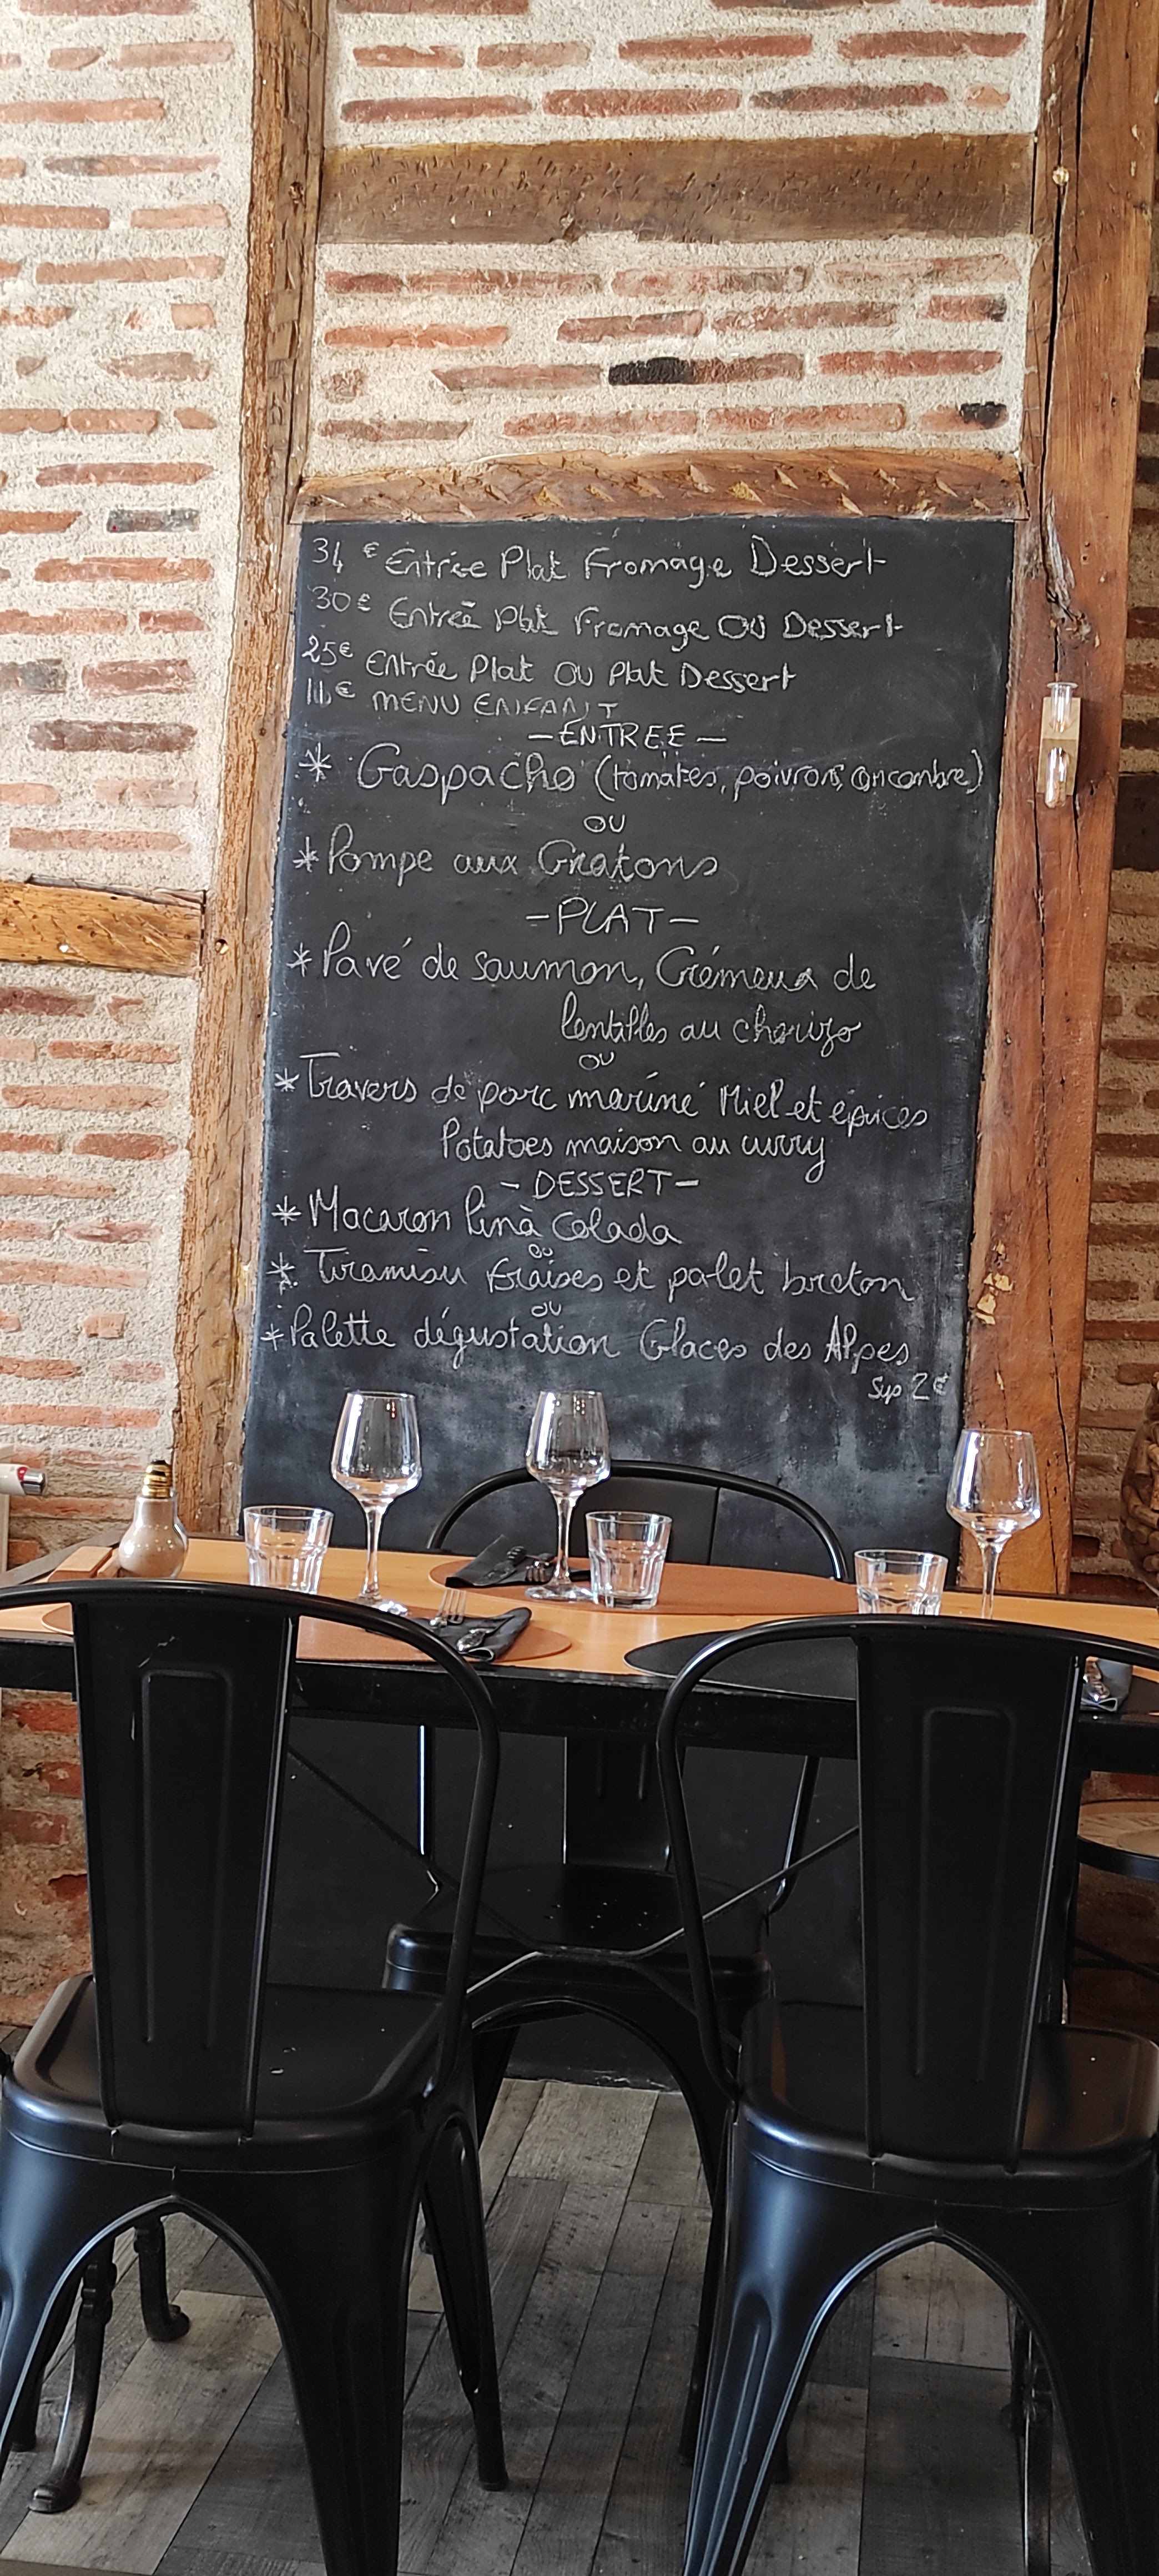 34 € Entrée Plat Fromage Dessert
30€ Entrée Plat Fromage OU Dessert
25€ Entrée Plat OU Plat Dessert
€ MENU ENFANT
-ENTREE-
* Gaspacho (tomates, poivrons, concombre)
OU
* Pompe aux Gratons
-PLAT-
* Pavé de saumon, Crémeux de
lentilles au chorizo
OU
* Travers de porc mariné Miel et épices
Potatoes maison au curry
-DESSERT-
* Macaron Pinà Colada
ou
* Tiramisu fraises et palet breton
OU
* Palette dégustation Glaces des Alpes
Sup 2€